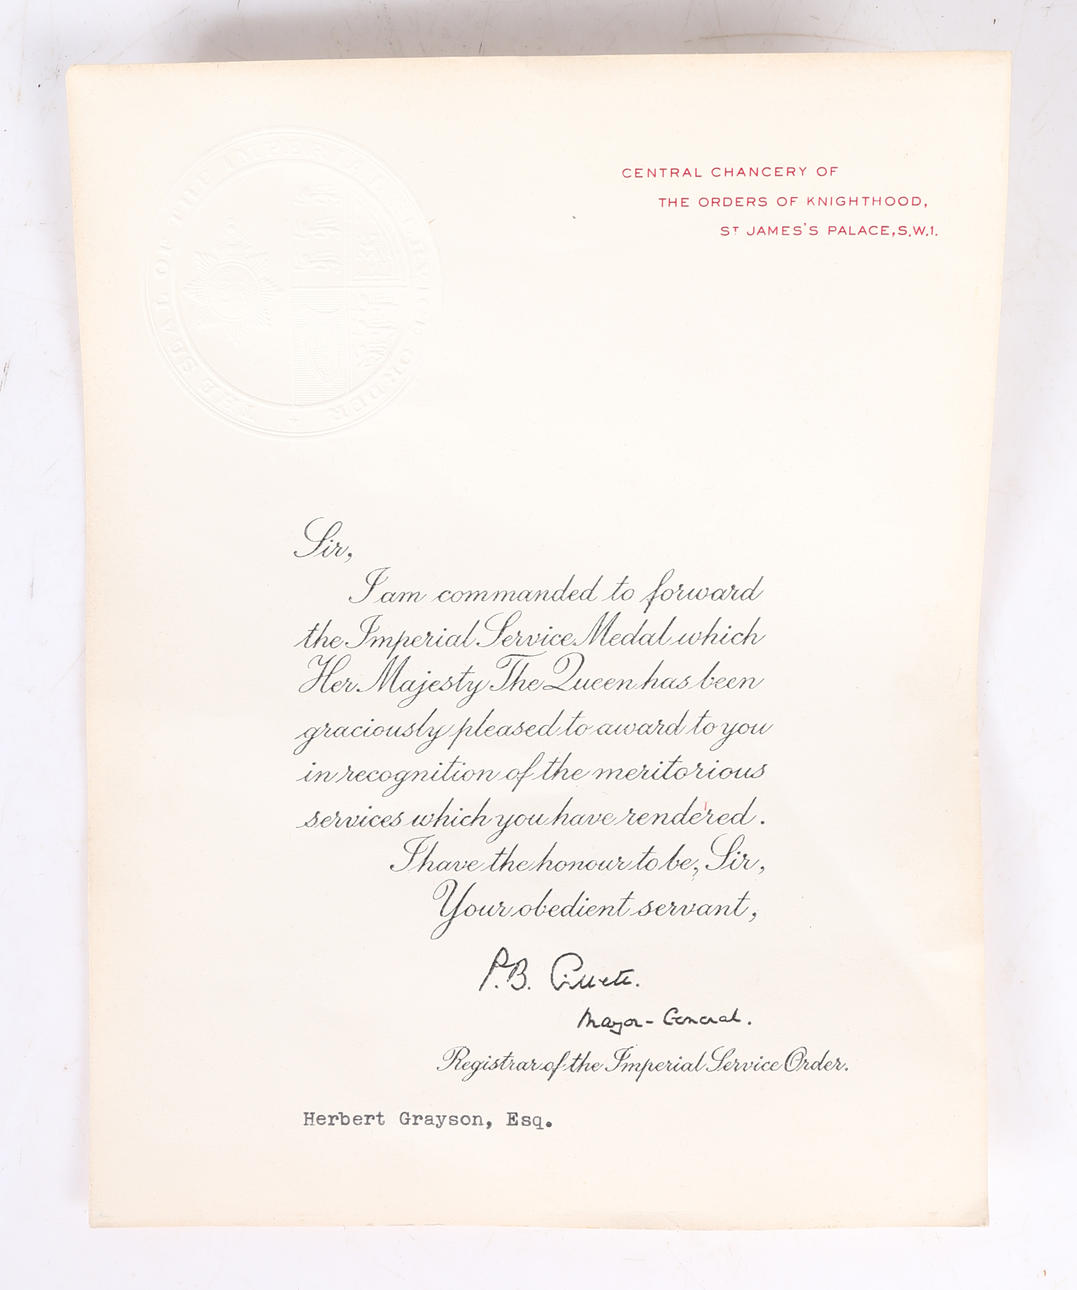 THE SEAL OF THE IMPERIAL SERVICE ORDER
CENTRAL CHANCERY OF
THE ORDERS OF KNIGHTHOOD,
ST JAMES'S PALACE, S.W.1.
Sir,
I am commanded to forward
the Imperial Service Medal which
Her Majesty The Queen has been
graciously pleased to award to you
in recognition of the meritorious
services which you have rendered.
I have the honour to be, Sir,
Your obedient servant,
P.B. Gillett.
Major-General.
Registrar of the Imperial Service Order.
Herbert Grayson, Esq.